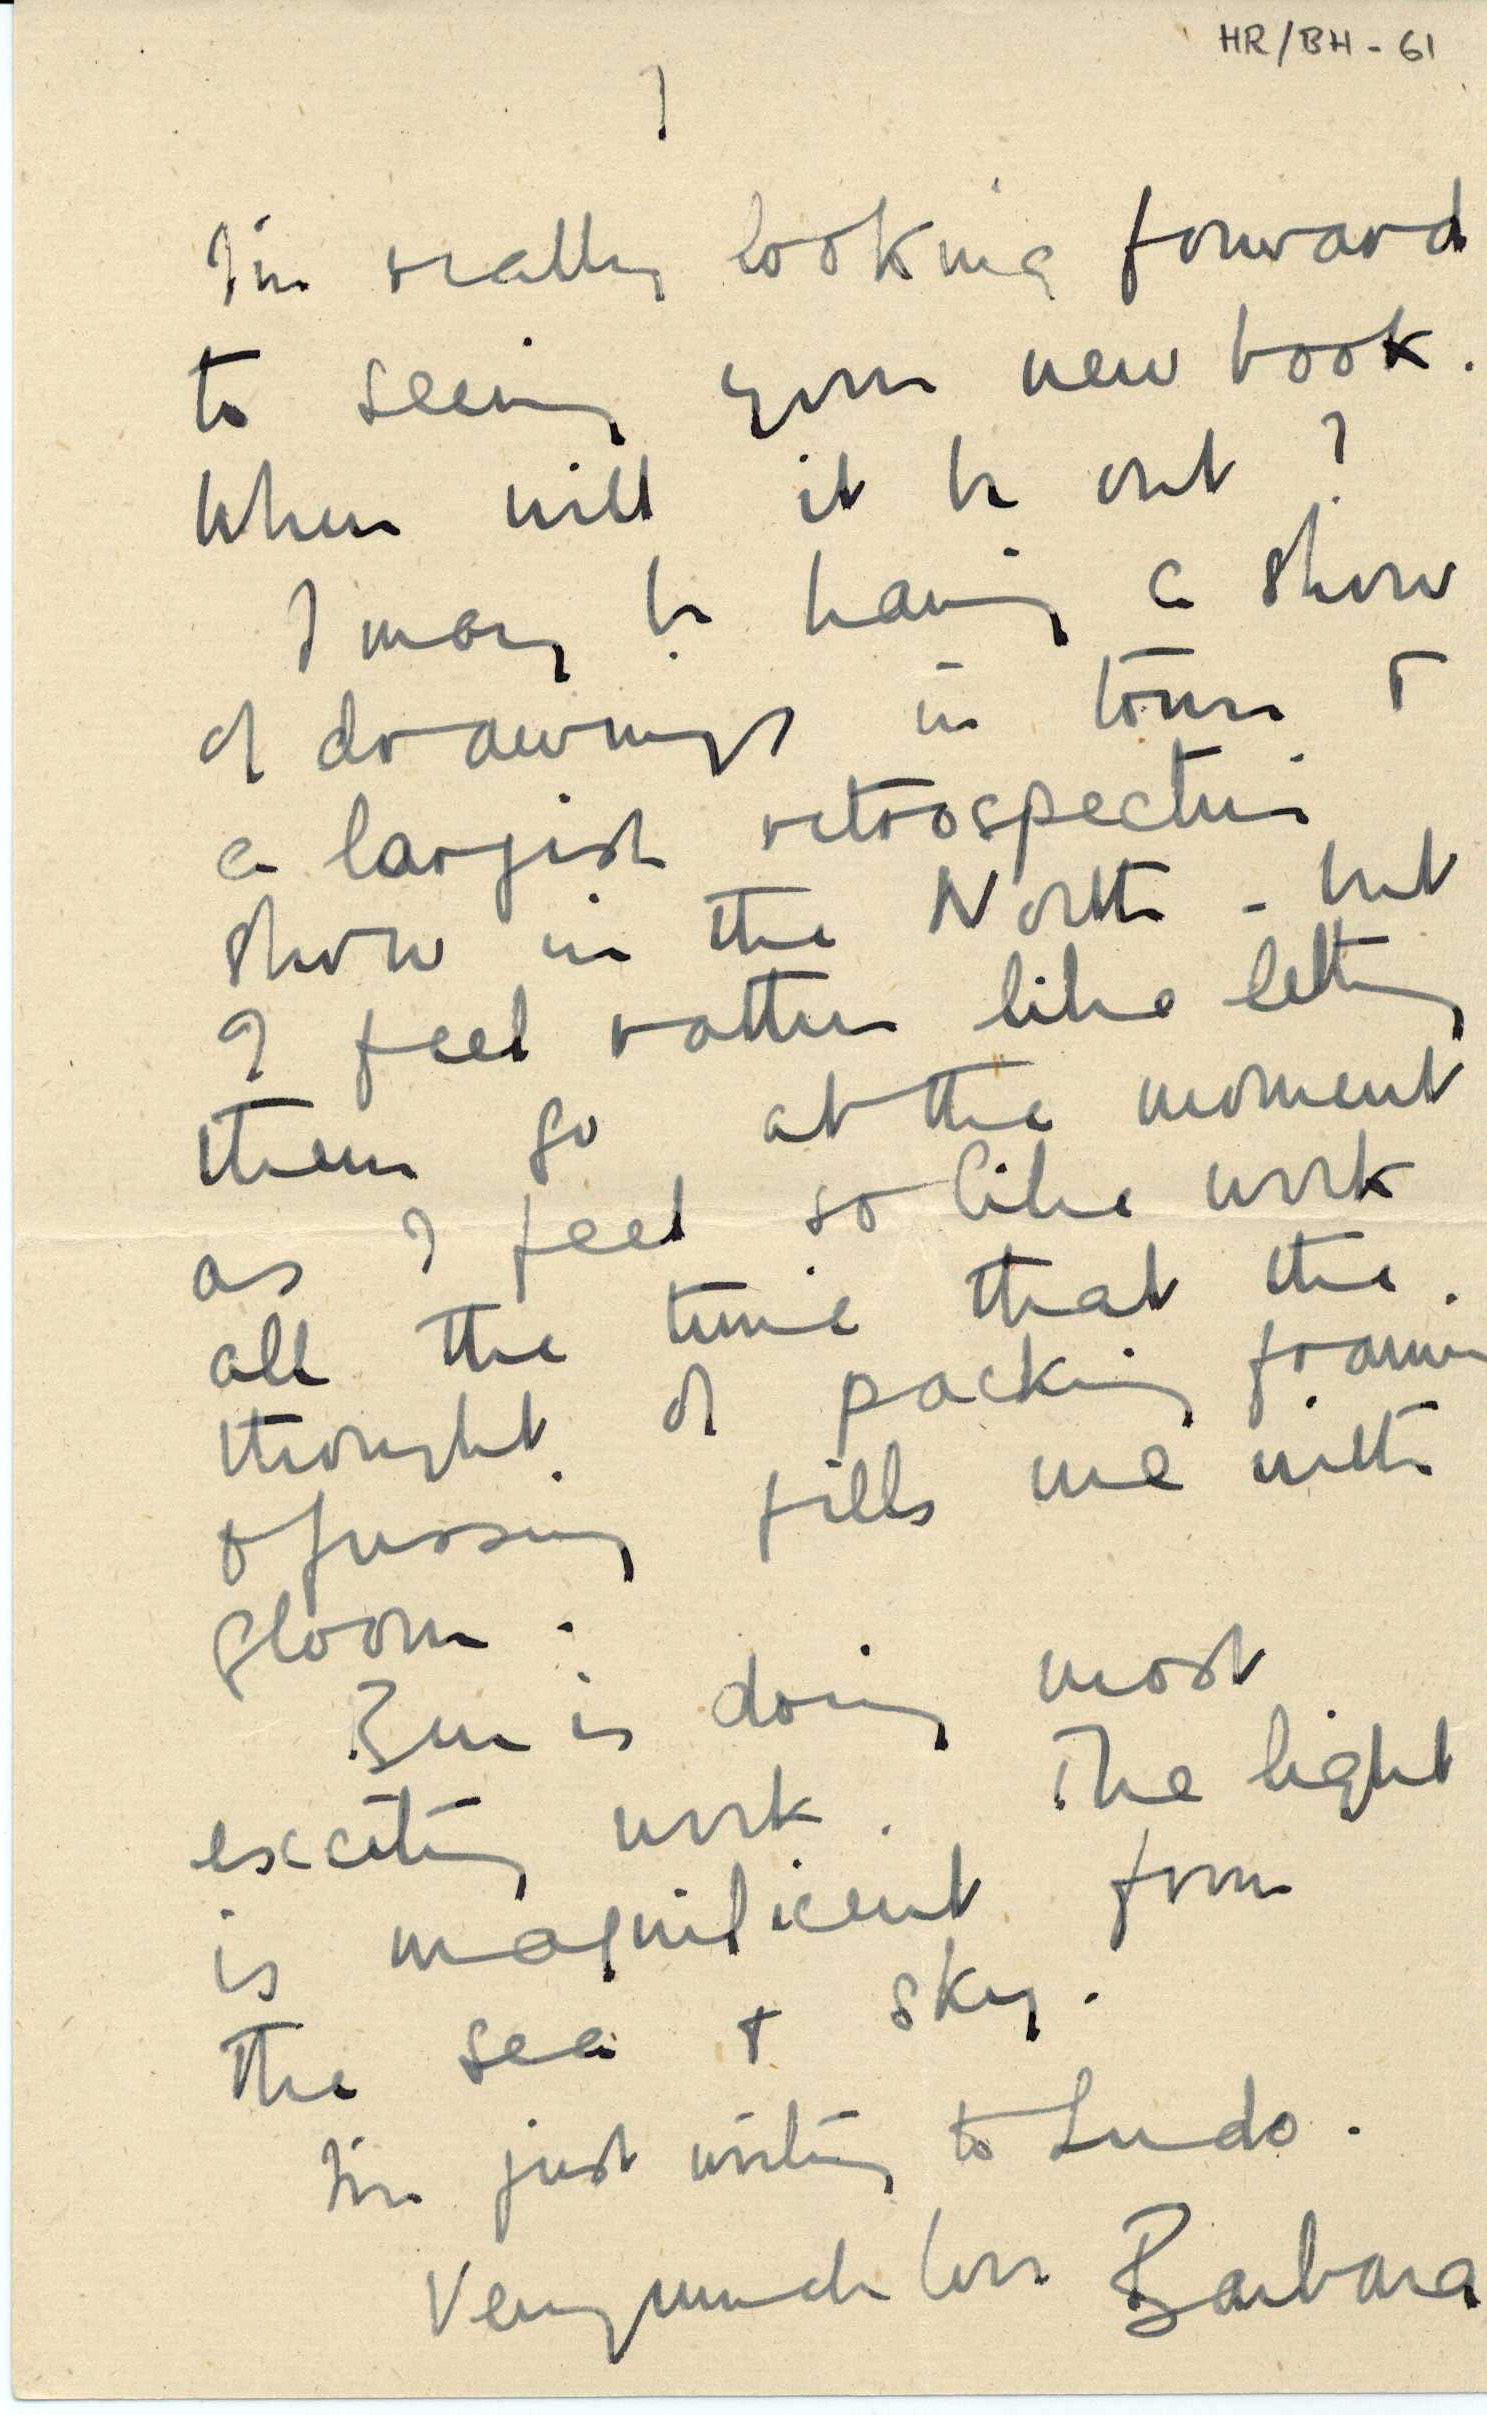 HR/BH - 61
I'm really looking forward
to seeing your new book.
When will it be out?
I may be having a show
of drawings in town &
a largish retrospective
show in the North - but
I feel rather like letting
them go at the moment
as I feel so like work
all the time that the
thought of packing framing
& fussing fills me with
gloom.
Ben is doing most
exciting work. The light
is magnificent from
the sea + sky.
I'm just writing to Ludo.
Very much love Barbara